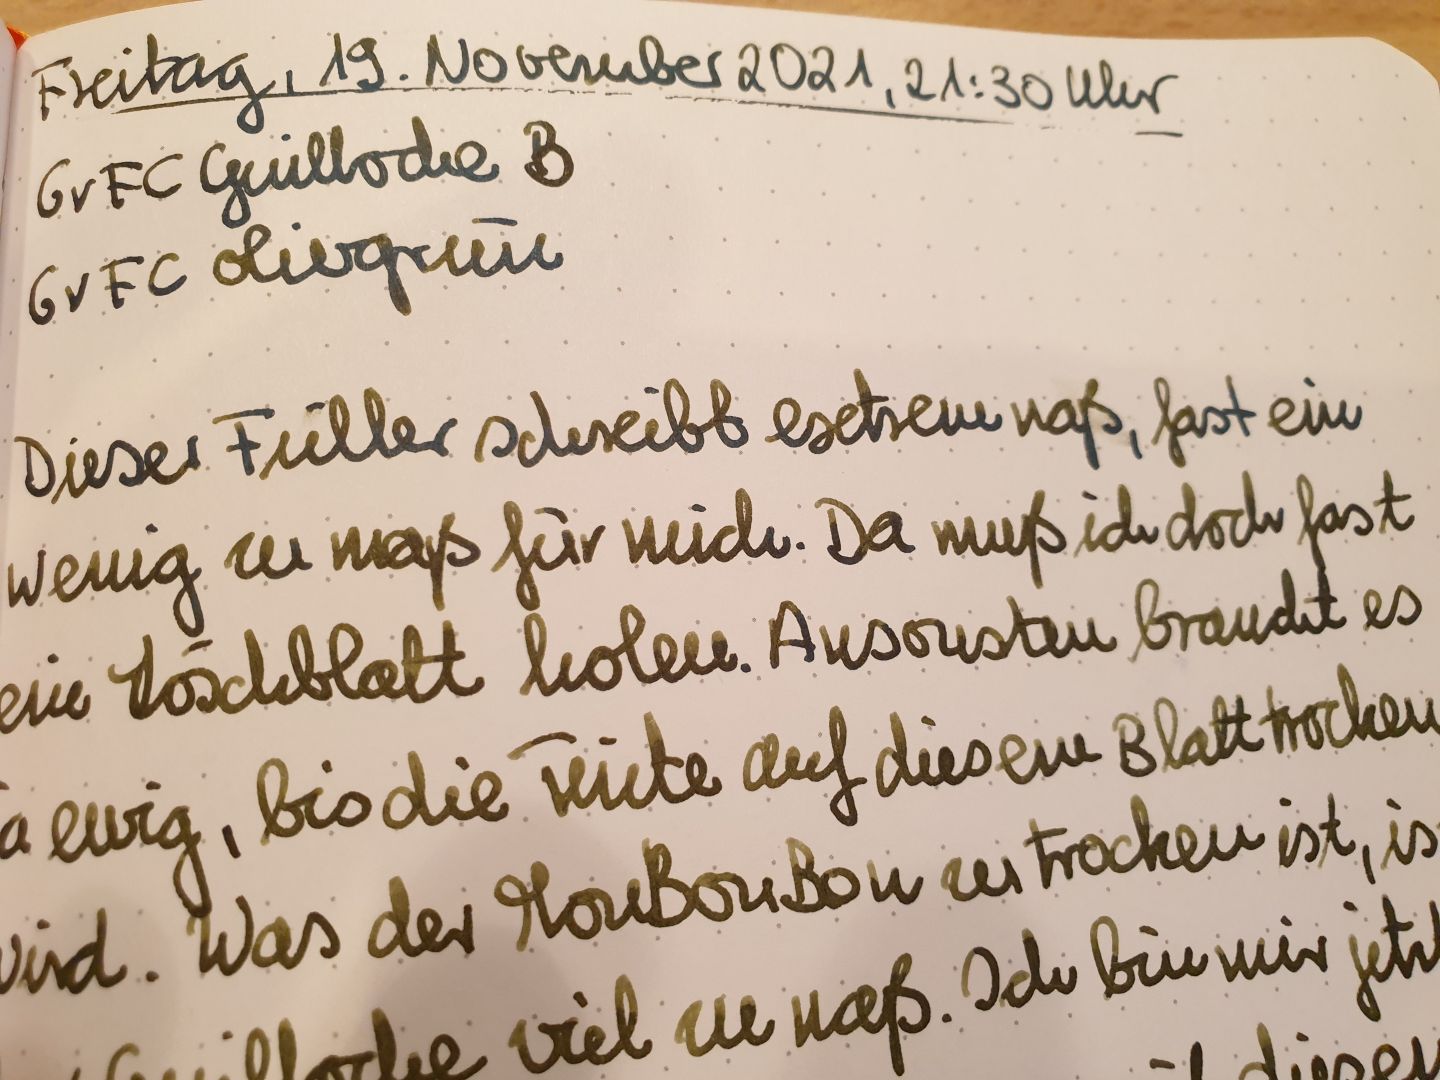 Freitag, 19. November 2021, 21:30 Uhr
GvFC Guilloche B
GvFC Olivgrün
Dieser Füller schreibt extrem naß, fast ein
wenig zu naß für mich. Da muß ich doch fast
ein Löschblatt holen. Ansonsten braucht es
ja ewig, bis die Tinte auf diesem Blatt trocken
wird. Was der MonBonBon zu trocken ist, is
Guilloche viel zu naß. Ich bin mir jetzt
diesen